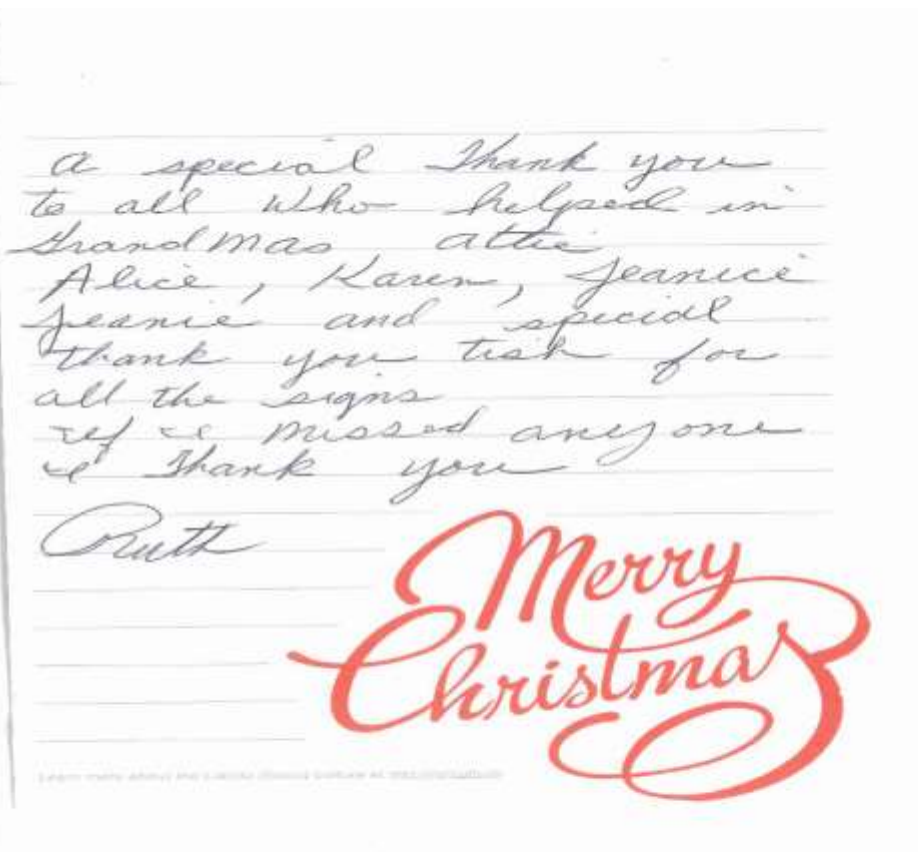 A special Thank you
to all who helped in
GrandMas attic
Alice, Karen, Jeanice
Jeanie and special
thank you tish for
all the signs
if i missed anyone
i Thank you
Ruth
Merry
Christmas
Learn more about the